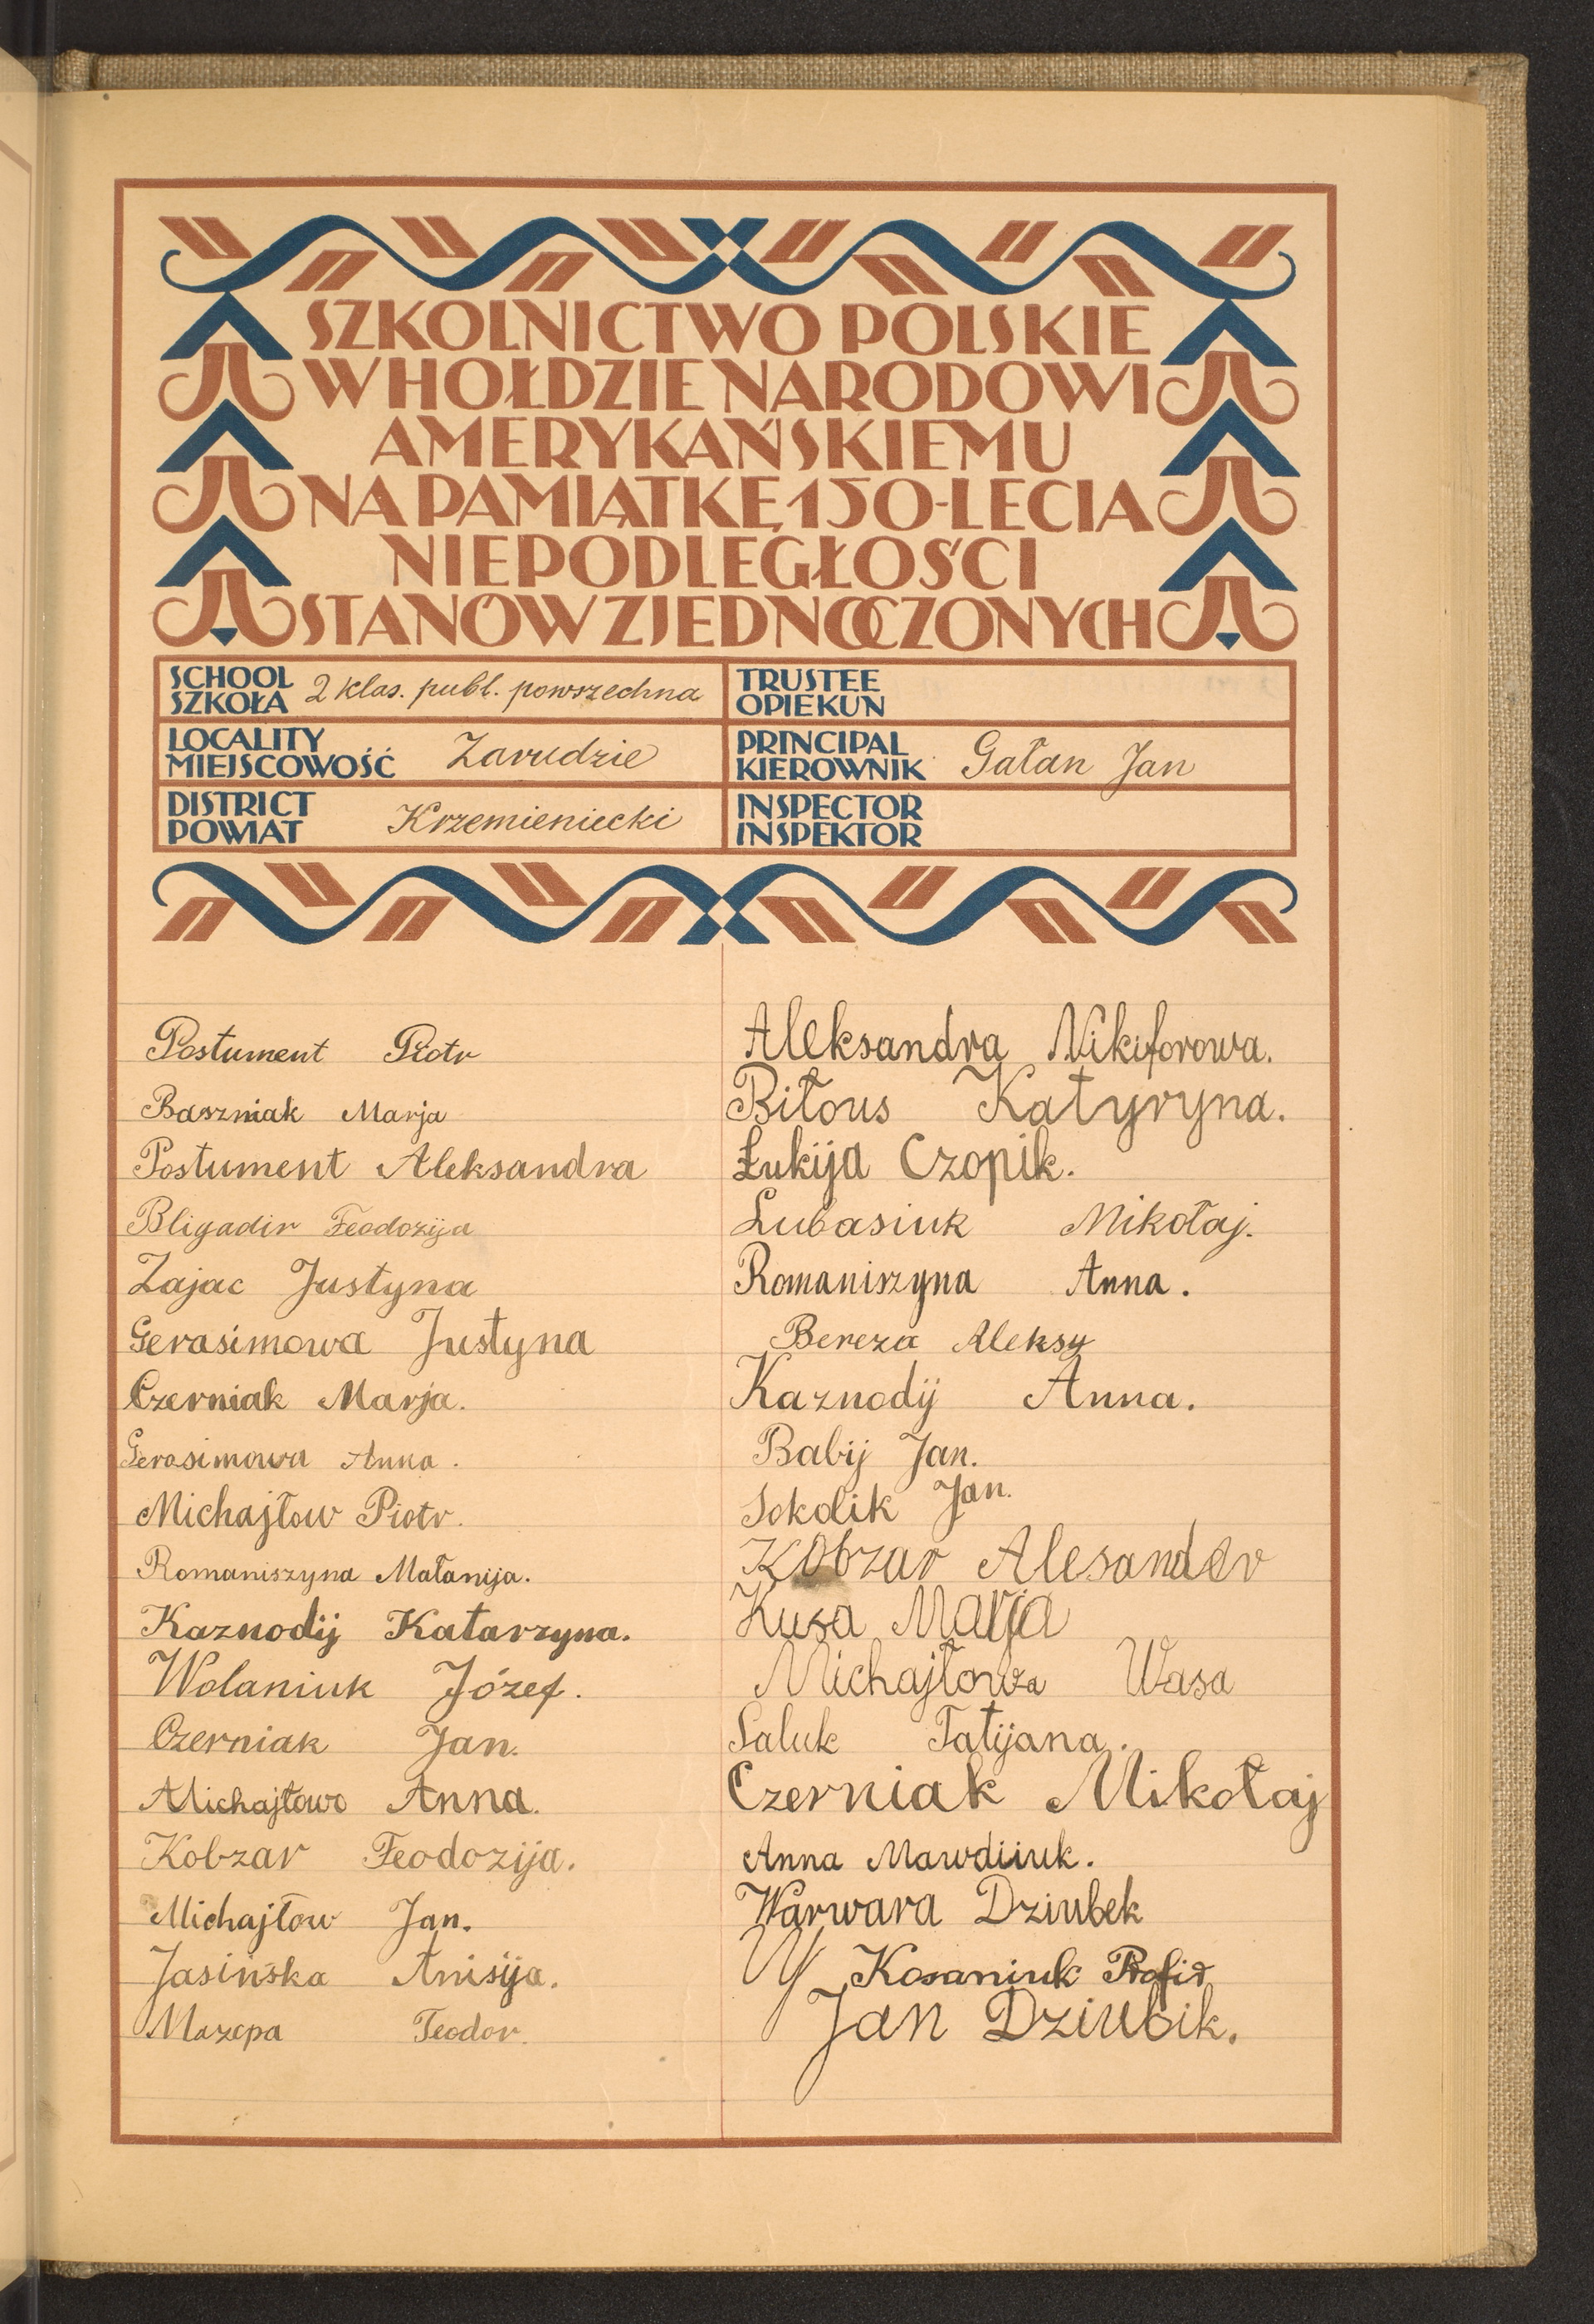 SZKOLNICTWO POLSKIE
W HOŁDZIE NARODOWI
AMERYKAŃSKIEMU
NA PAMIĄTKĘ 150-LECIA
NIEPODLEGŁOŚCI
STANÓW ZJEDNOCZONYCH
SCHOOL
SZKOŁA 2 klas. publ. powszechna
TRUSTEE
OPIEKUN
LOCALITY
MIEJSCOWOŚĆ Zarudzie
PRINCIPAL
KIEROWNIK Gałan Jan
DISTRICT
POWIAT Krzemieniecki
INSPECTOR
INSPEKTOR
Postument Piotr
Baszniak Marja
Postument Aleksandra
Bligadir Feodozija
Zajac Justyna
Gerasimowa Justyna
Czerniak Marja.
Gerasimowa Anna.
Michajłow Piotr.
Romaniszyna Małanija.
Kaznodij Katarzyna.
Wolaniuk Józef.
Czerniak Jan.
Michajłowo Anna.
Kobzar Feodozija.
Michajłow Jan.
Jasińska Anisija.
Mazepa Teodor.
Aleksandra Nikiforowa.
Biłous Katyryna.
Łukija Czopik.
Lubasiuk Mikołaj.
Romaniszyna Anna.
Bereza Aleksy
Kaznodij Anna.
Babij Jan.
Sokolik Jan.
Kobzar Alesander
Kusa Marja
Michajłowa Wasa
Saluk Tatijana.
Czerniak Mikołaj
Anna Mawdiiuk.
Warwara Dziubek
Kosaniuk
Jan Dziubik.